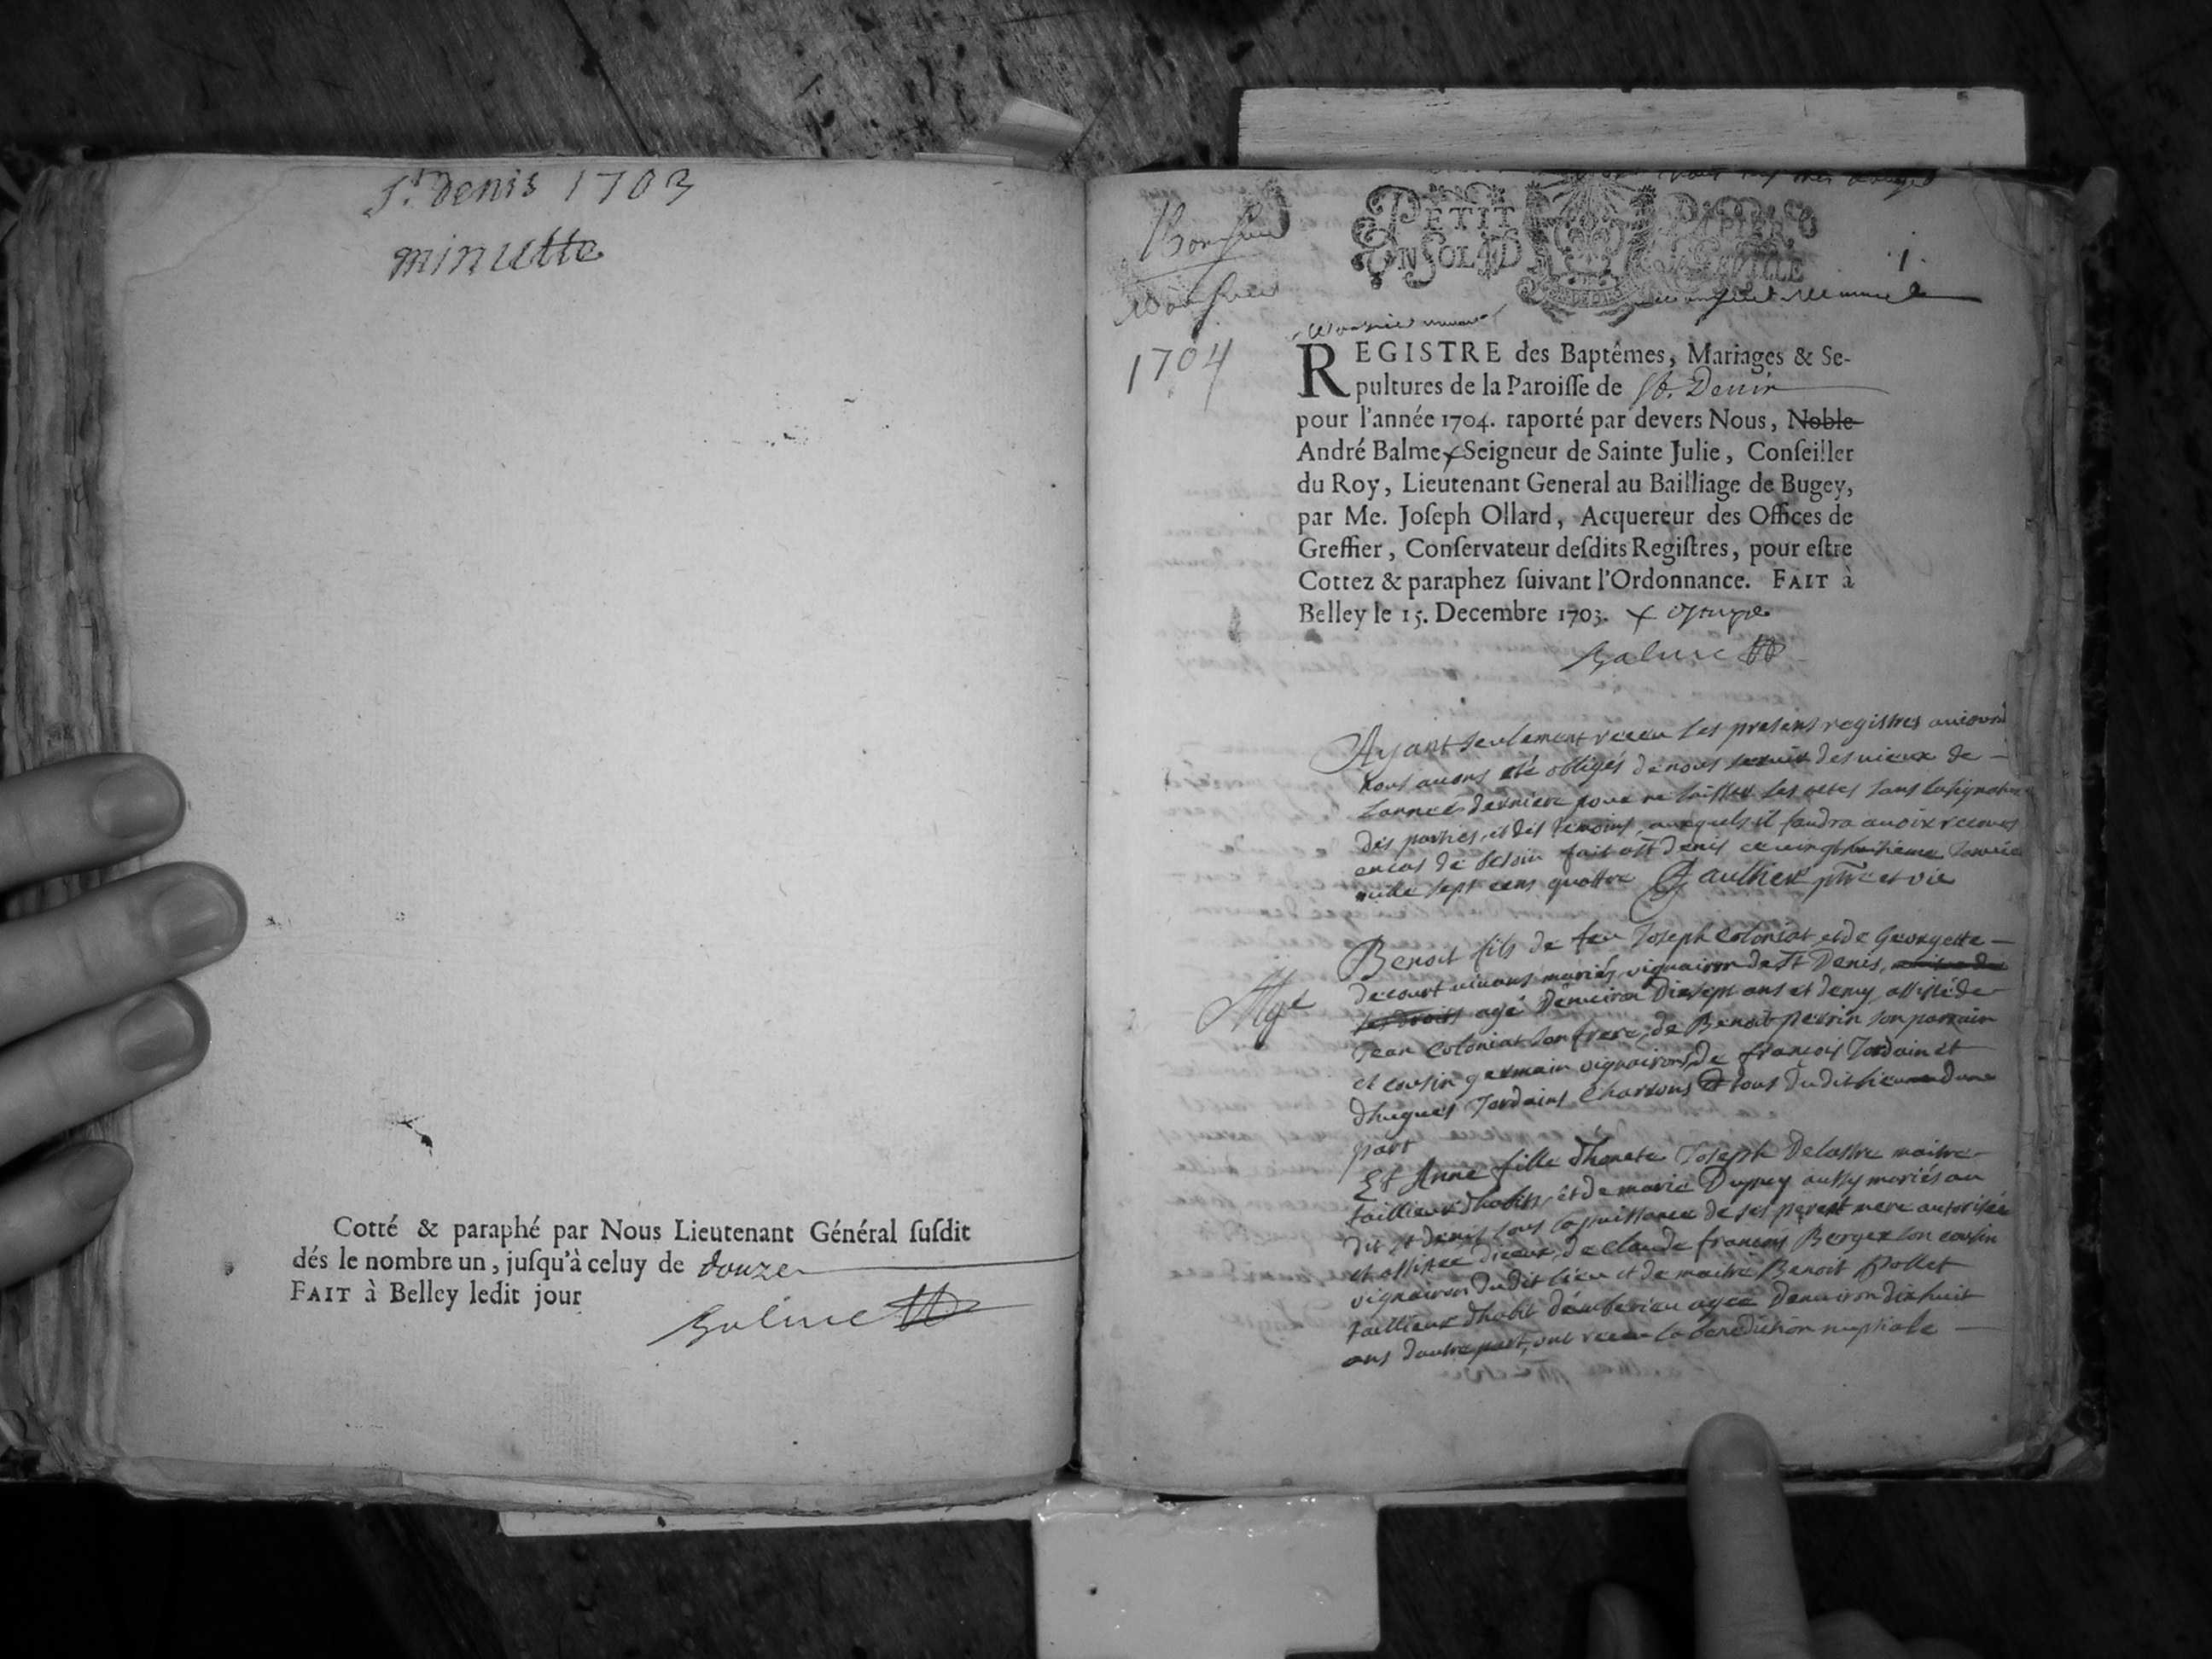 St. Denis 1703
minutte
Cotté & paraphé par Nous Lieutenant Général ſuſdit
dés le nombre un, juſqu'à celuy de douze
FAIT à Belley ledit jour
Balme
PETIT PAPIER
UN SOL LA FEUILLE
1.
Monsieur
Monsieur
1704
REGISTRE des Baptêmes, Mariages & Se-
pultures de la Paroiſſe de St. Denis
pour l'année 1704. raporté par devers Nous, Noble
André Balme + Seigneur de Sainte Julie, Conſeiller
du Roy, Lieutenant General au Bailliage de Bugey,
par Me. Joſeph Ollard, Acquereur des Offices de
Greffier, Conſervateur deſdits Regiſtres, pour eſtre
Cottez & paraphez ſuivant l'Ordonnance. FAIT à
Belley le 15. Decembre 1703. +
Balme
Ayant seulement receu les presens registres
nous avons été obligés de nous servir des vieux de
l'année derniere pour ne laisser les actes sans la signature
des parties et des temoins, auxquels il faudra avoir recours
en cas de besoin fait a St Denis ce vingt huitieme Janvie
mille sept cens quattre Gaulthier ptre et vic
Benoit fils de feu Joseph Coloniat et de Georgette
decourt vivans mariés vignairon de St Denis,
agé d'environ diesept ans et demy assisté de
Jean Coloniat son frere, de Benoit perrin son parrain
et cousin germain vignairons, de françois Jordain et
d'hugues Jordains Charrons tous du dit lieu d'une
part
Et Anne fille d'honete Joseph Delastre maitre
taillieur d'habits, et de marie Dupuy aussy mariés au
dit St denis sous la puissance de ses pere et mere autorisée
et assistée d'iceux, de Claude françois Berger son cousin
vignairon du dit lieu et de maitre Benoit Pollet
taillieur d'habit d'amberieu agée d'environ dixhuit
ans d'autre part, ont receu la benediction nuptiale